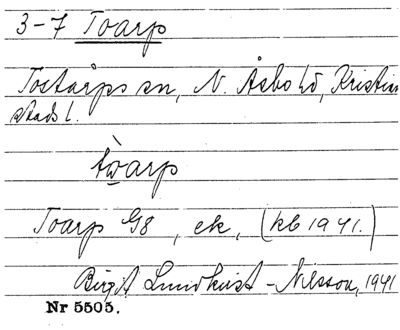 3-7 Toarp
Tostarps sn, N. Åsbo hd, Kristian
stads l.
tẁarp
Toarp G8, ek, (kb 1941.)
Birgit Lundkvist - Nilsson, 1941
Nr 5505.